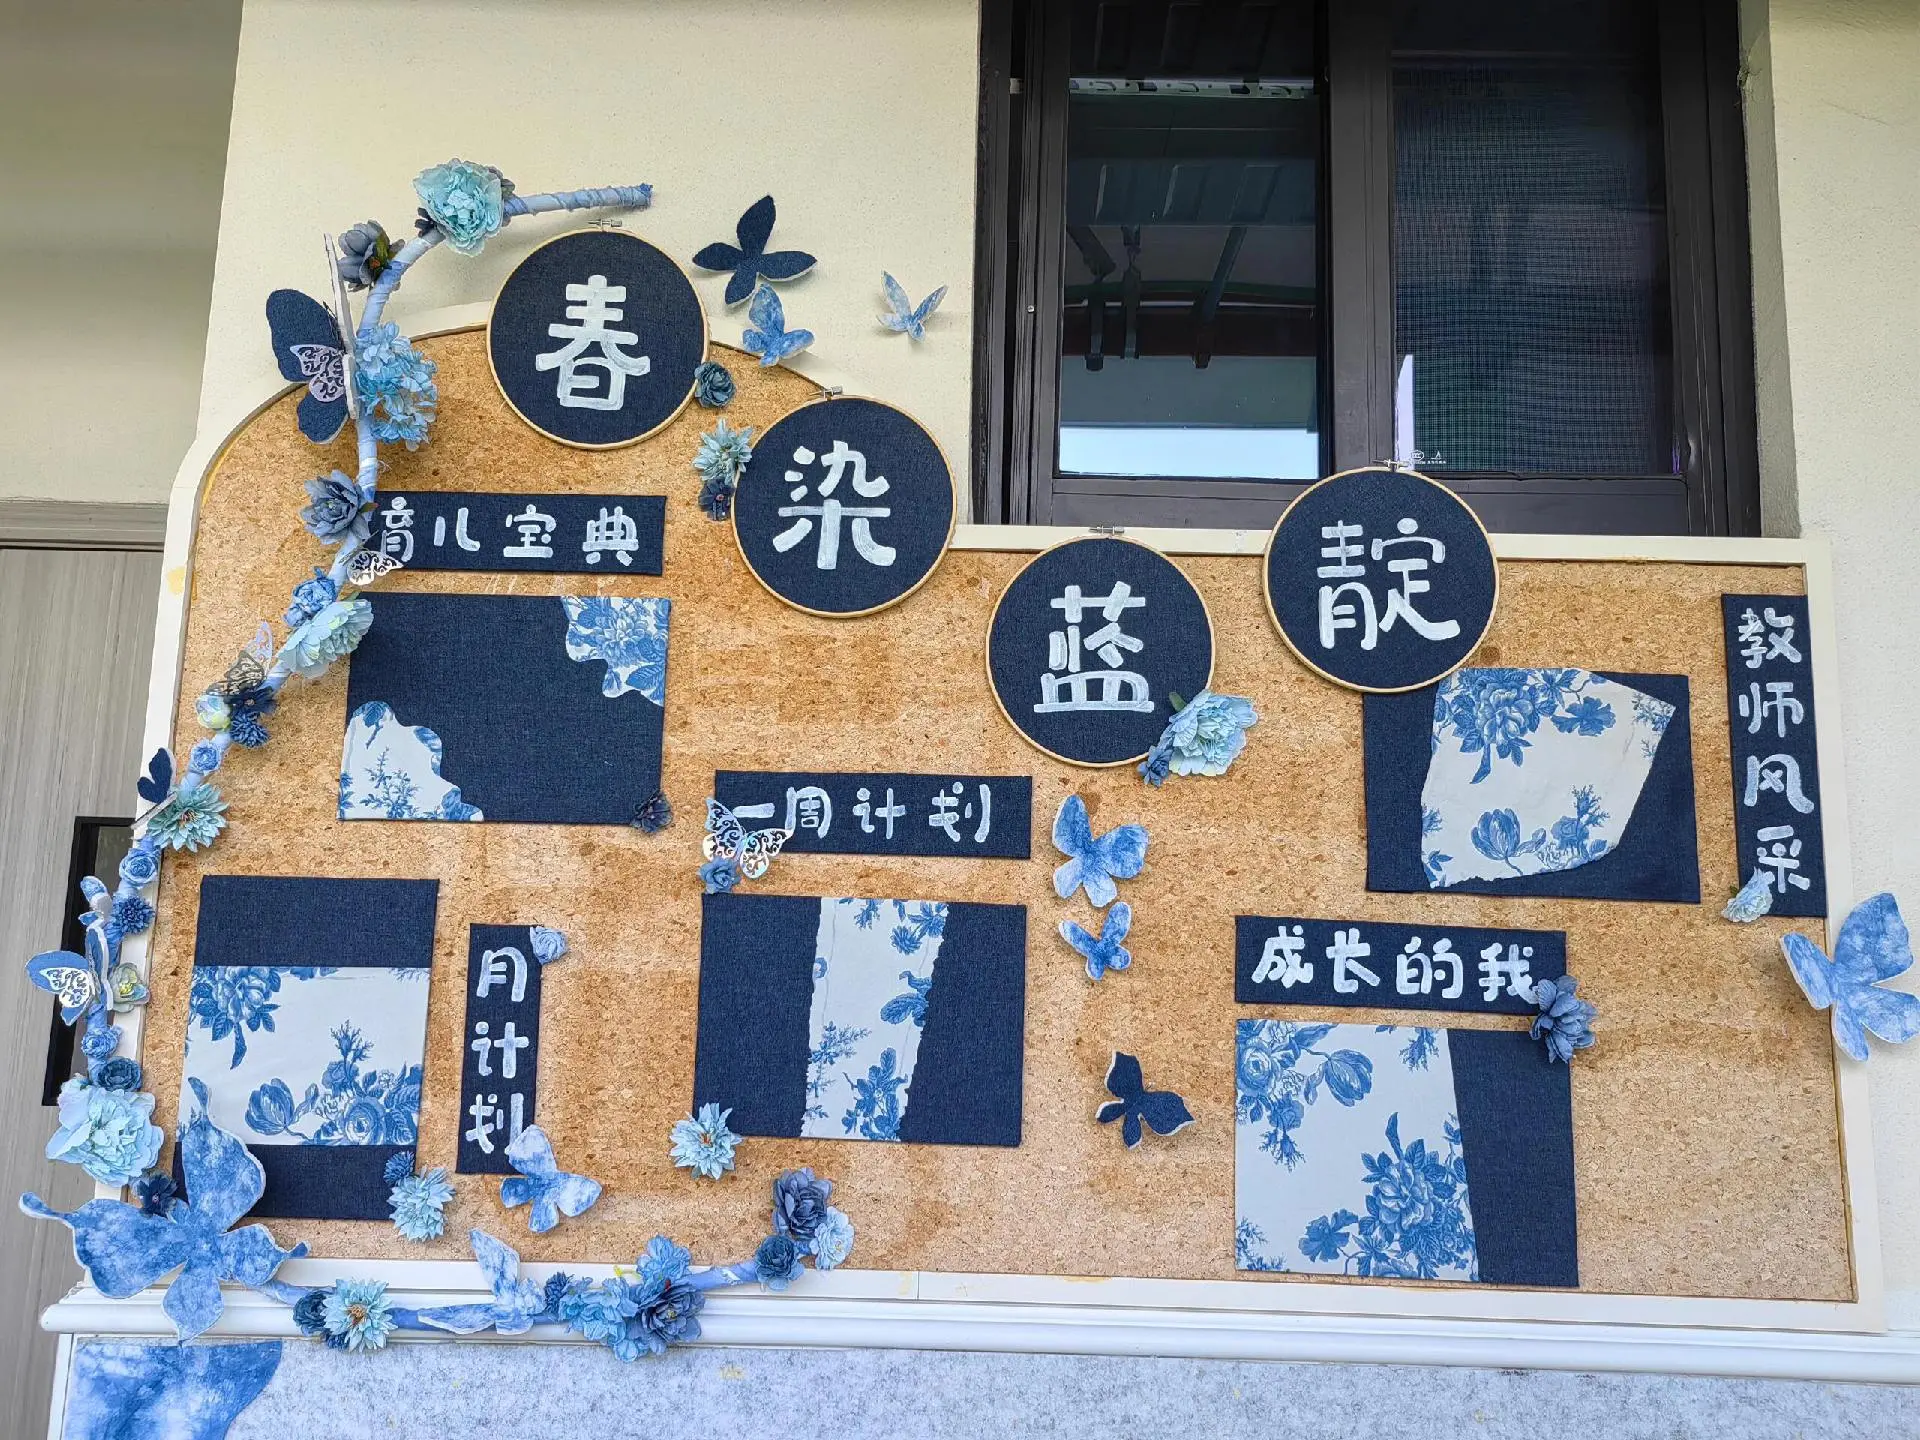 春染蓝靛
育儿宝典
一周计划
月计划
成长的我
教师风采